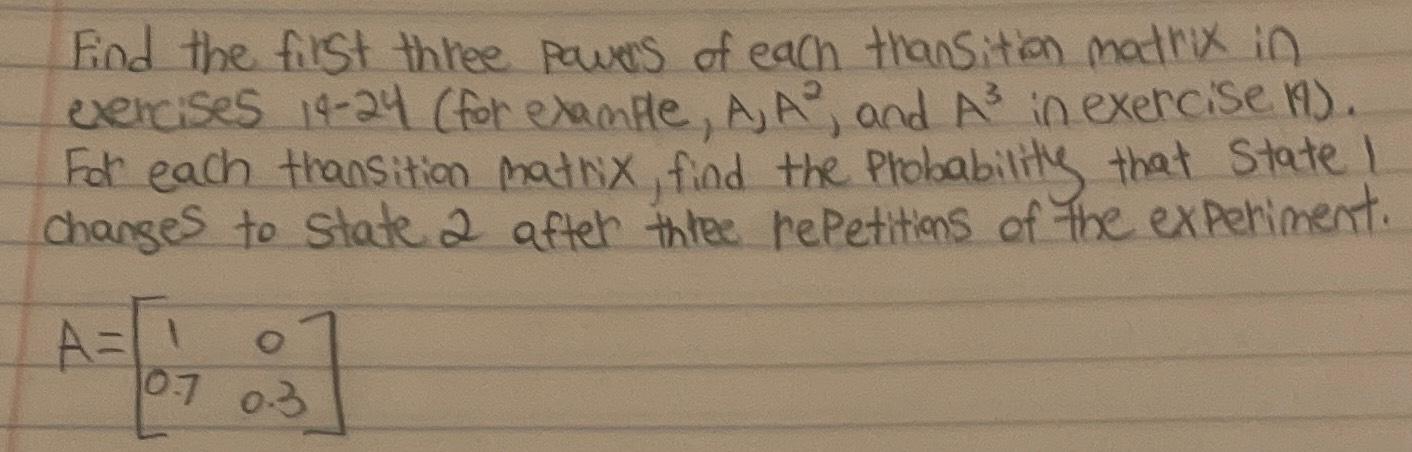 Find the first three powers of each transition matrix in
exercises 19-24 (for example, A, A², and A³ in exercise 19).
For each transition matrix, find the Probability that State 1
changes to state 2 after three repetitions of the experiment.
A = [1 0
0.7 0.3]